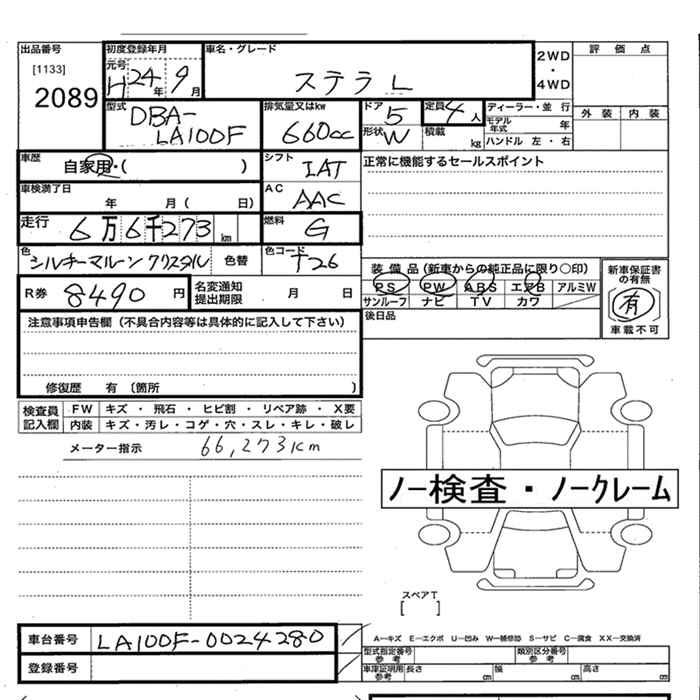 出品番号
[1133]
2089
初度登録年月
元号
H24年9月
車名・グレード
ステラ L
2WD
・
4WD
評価点
外装 内装
型式
DBA-
LA100F
排気量又はkw
660cc
ドア 5
形状 W
定員 4人
積載 kg
ディーラー・並行
モデル年式 年
ハンドル 左・右
車歴
自家用・( )
シフト
IAT
正常に機能するセールスポイント
車検満了日
年 月( 日)
AC
AAC
走行
6万6千273km
燃料
G
色
シルキーマルーンクリスタル
色替
色コード
T26
装備品(新車からの純正品に限り○印)
PS PW ABS エアB アルミW
サンルーフ ナビ TV カワ
新車保証書
の有無
有
車載不可
R券 8490円
名変通知
提出期限
月 日
後日品
注意事項申告欄(不具合内容等は具体的に記入して下さい)
修復歴 有 〔箇所 〕
検査員
記入欄
FW キズ・飛石・ヒビ割・リペア跡・X要
内装 キズ・汚レ・コゲ・穴・スレ・キレ・破レ
メーター指示 66,273km
ノー検査・ノークレーム
スペアT
[ ]
車台番号 LA100F-0024280
登録番号
A−キズ E−エクボ U−凹み W−補修跡 S−サビ C−腐食 XX−交換済
型式指定番号
参考
類別区分番号
参考
車庫証明用
参考
長さ cm
幅 cm
高さ cm